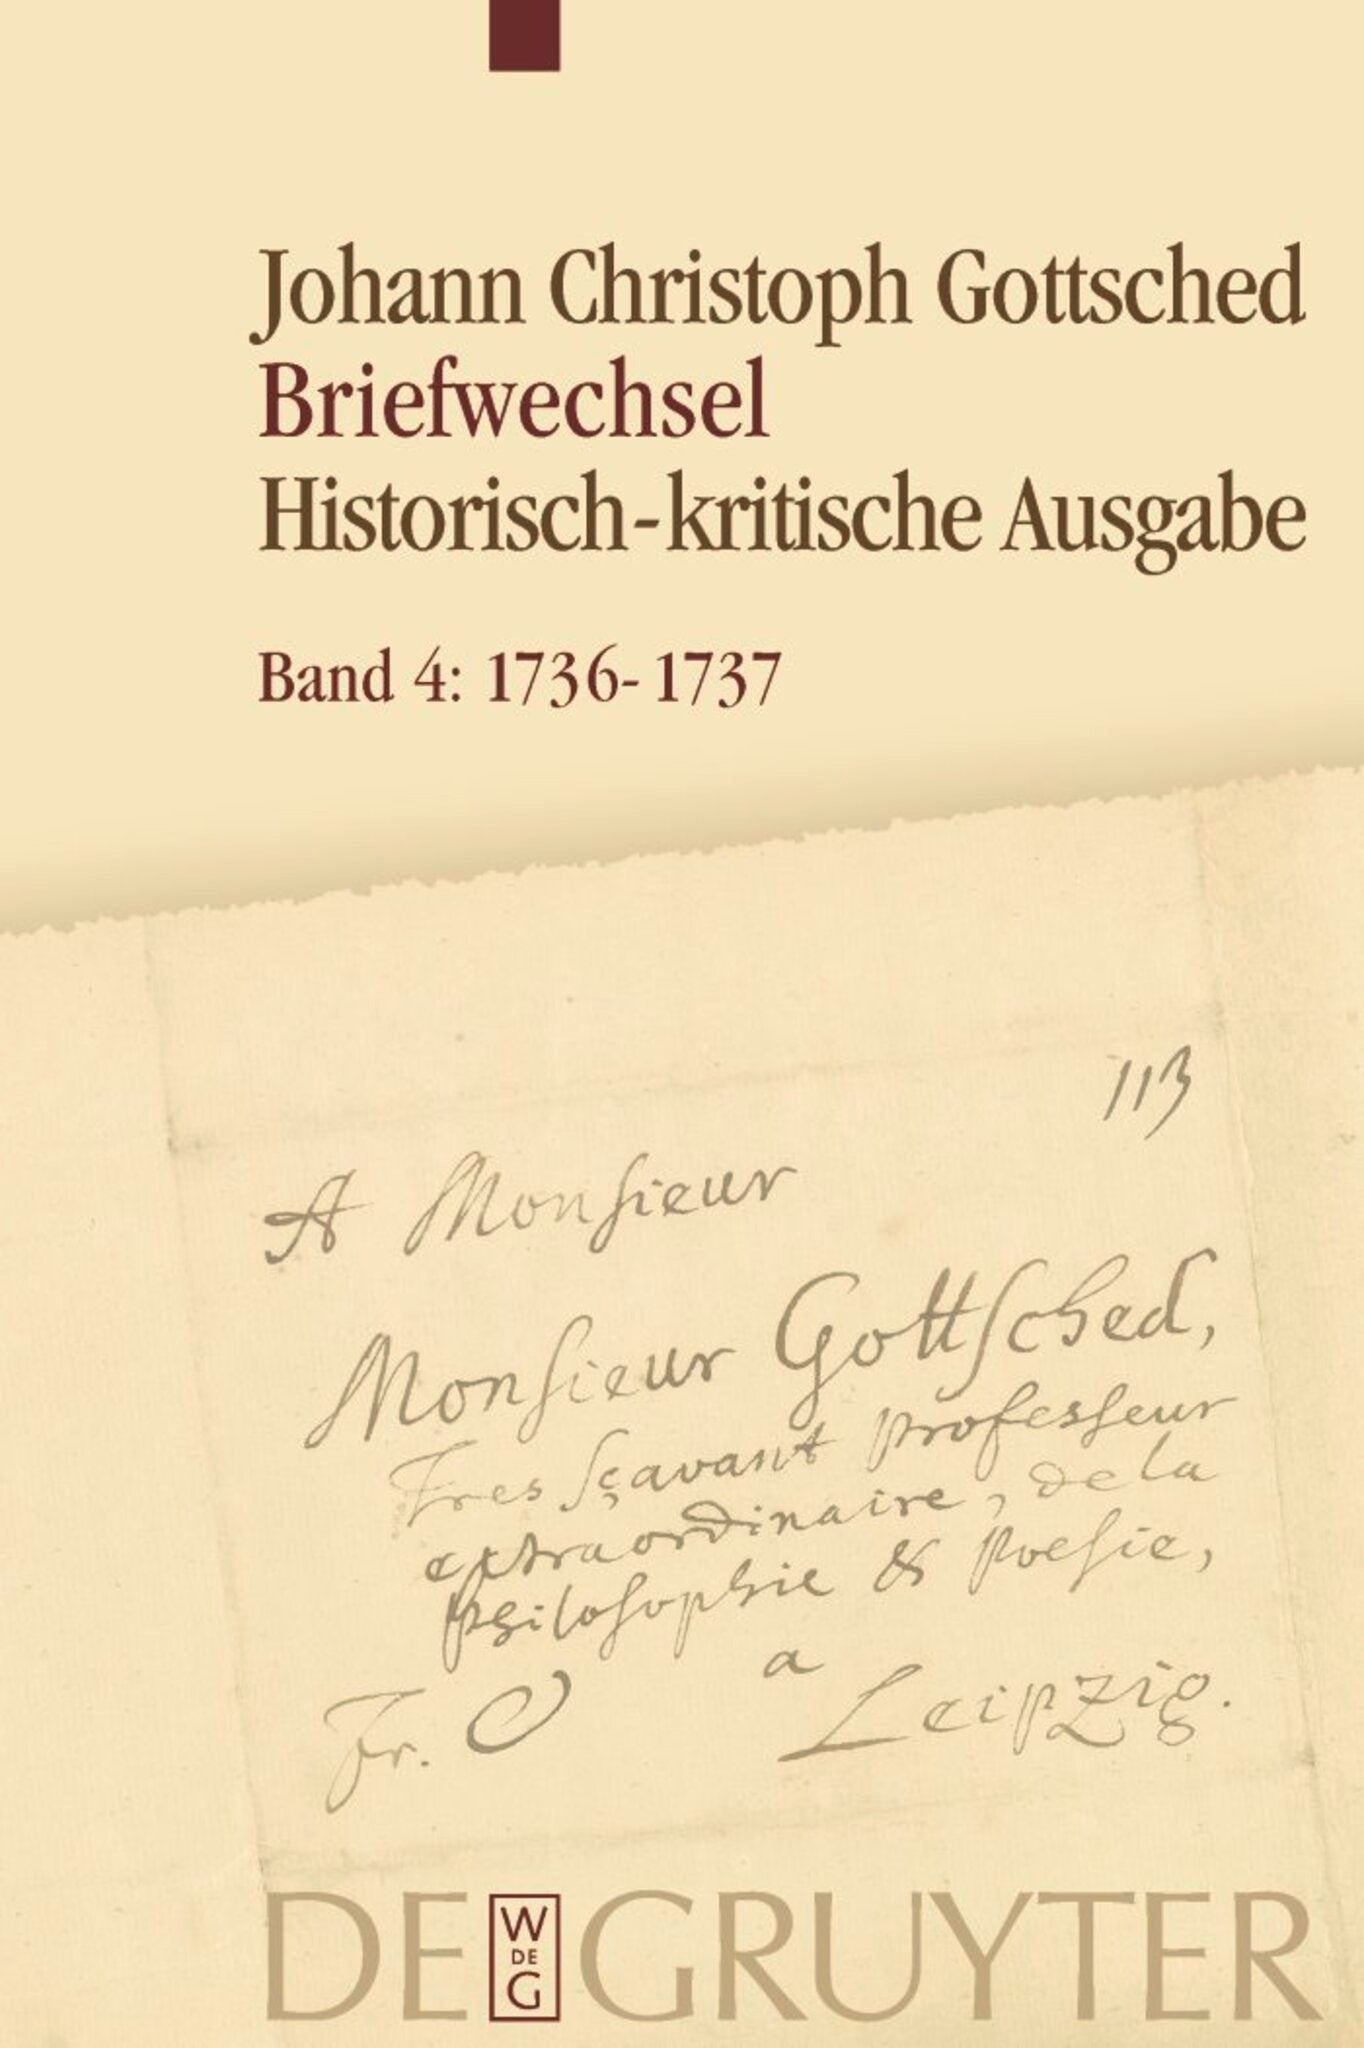 Johann Christoph Gottsched
Briefwechsel
Historisch-kritische Ausgabe
Band 4: 1736-1737
113
A Monsieur
Monsieur Gottsched,
Tres sçavant professeur
extraordinaire, de la
philosophie & poesie,
a
Fr. Leipzig.
DE GRUYTER
W
DE
G